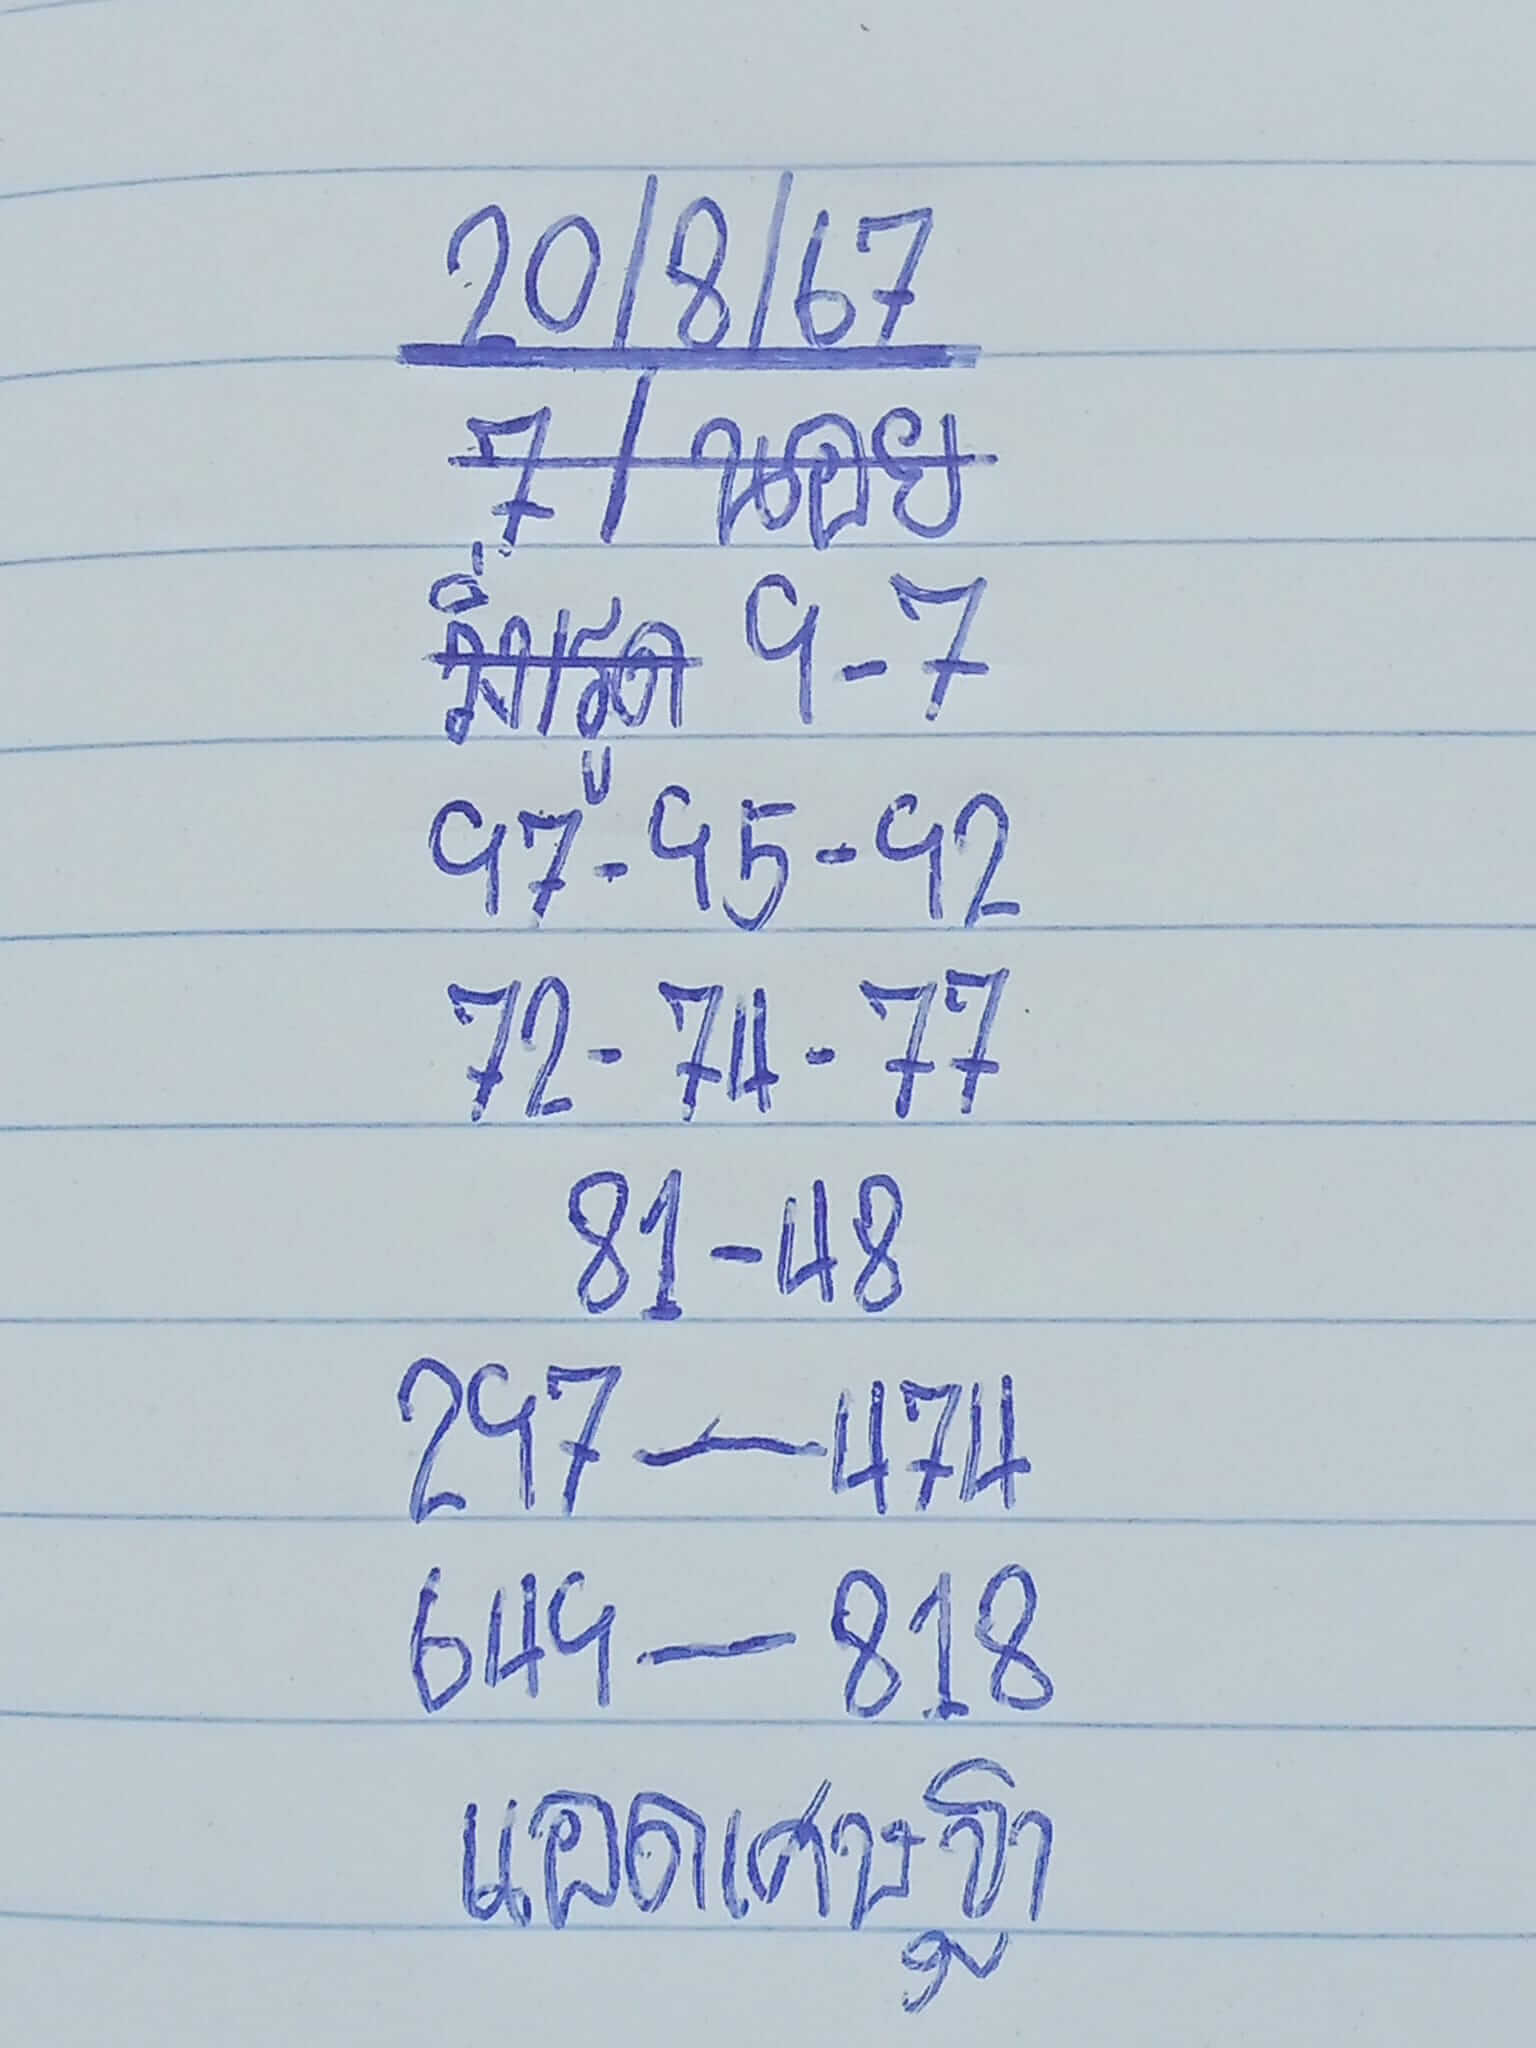 20/8/67
7/นอย
วิ่ง/รูด 9-7
97-95-92
72-74-77
81-48
297-474
649-818
แอดเศษฐา